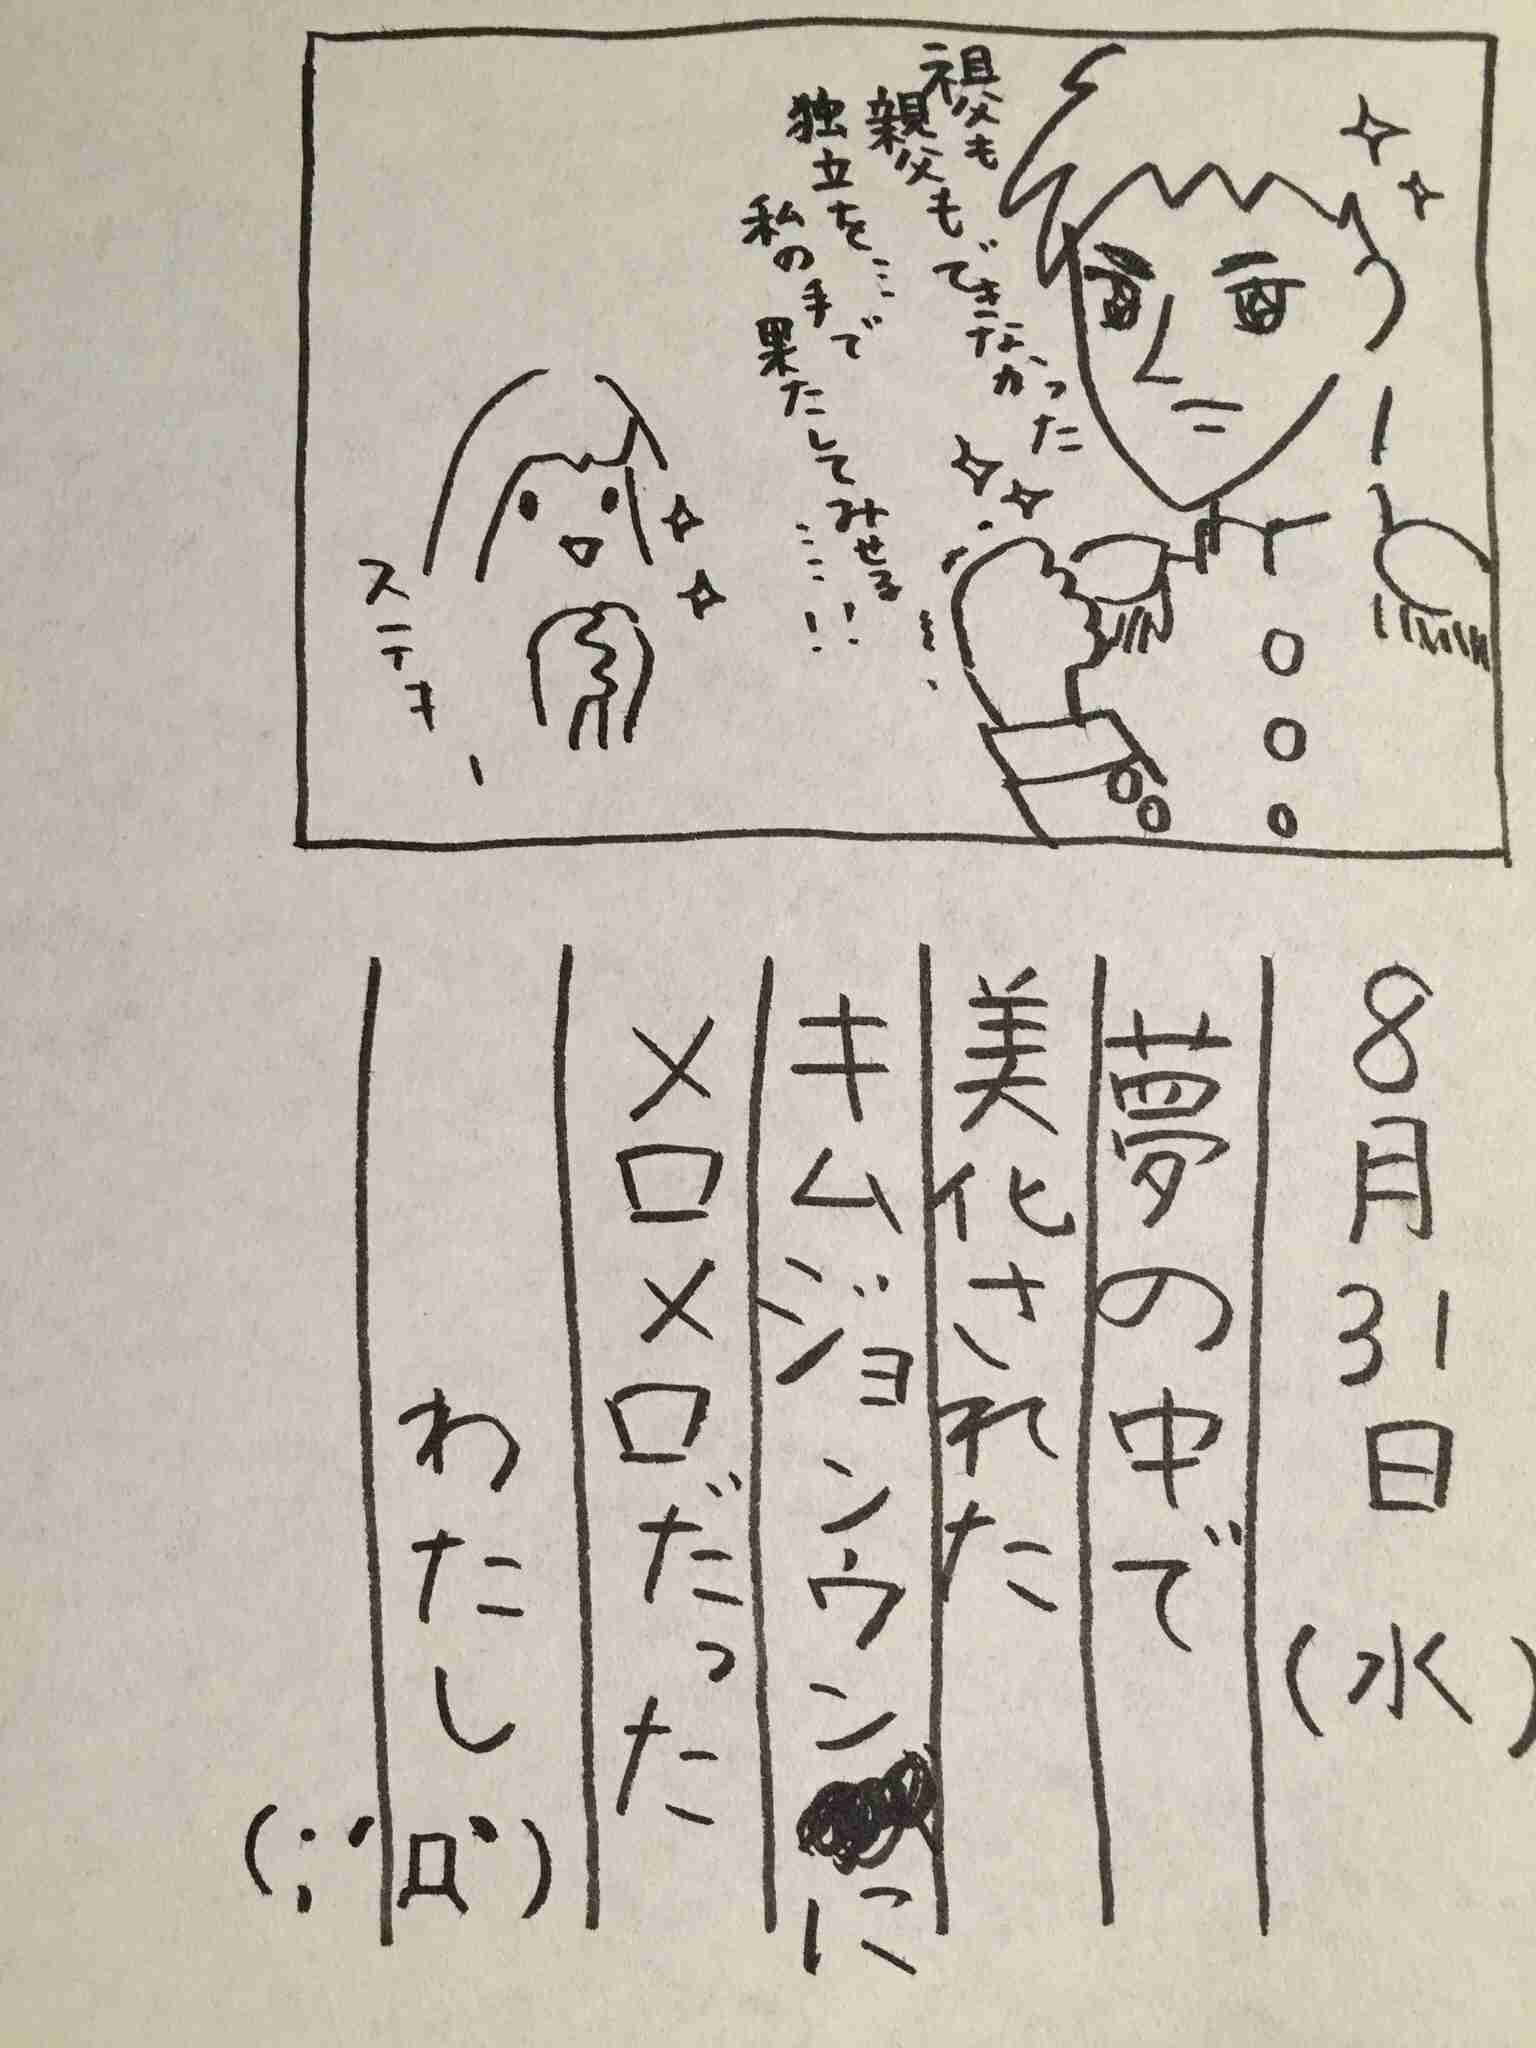 祖父も
親父もできなかった
独立を…
私の手で
果たしてみせる
……!!
ステキー
8月31日(水)
夢の中で
美化された
キムジョンウンに
メロメロだった
わたし(;´Д`)